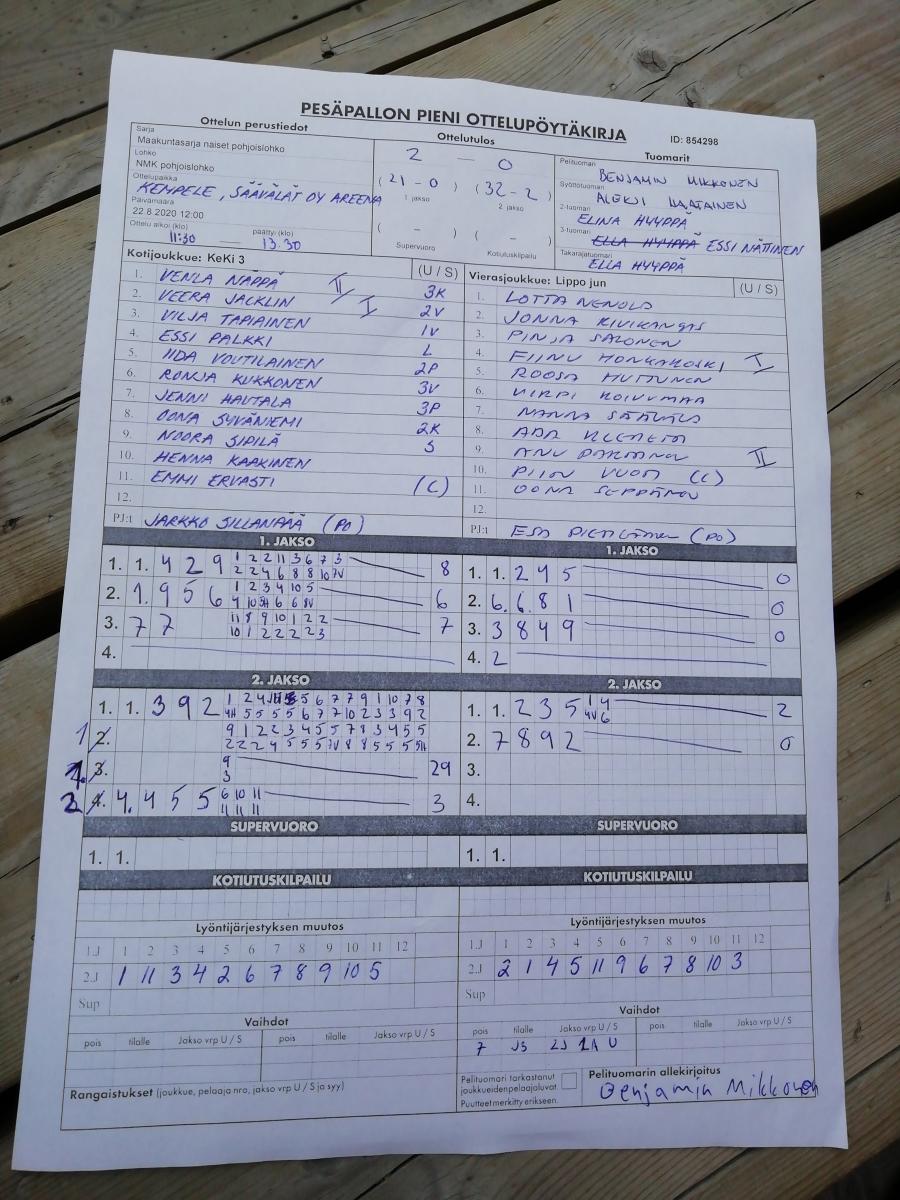 PESÄPALLON PIENI OTTELUPÖYTÄKIRJA
ID: 854298
Ottelun perustiedot
Sarja
Maakuntasarja naiset pohjoislohko
Lohko
NMK pohjoislohko
Ottelupaikka
KEMPELE, SÄÄVÄLÄT OY AREENA
Päivämäärä
22.8.2020 12:00
Ottelu alkoi (klo) päättyi (klo)
11:30 — 13.30
Ottelutulos
2 — 0
(21-0) (32-2)
1. jakso 2. jakso
( - ) ( - )
Supervuoro Kotiutuskilpailu
Tuomarit
Pelituomari BENJAMIN MIKKONEN
Syöttötuomari ALEKSI LAATAINEN
2-tuomari ELINA HYYPPÄ
3-tuomari ELLA HYYPPÄ ESSI NÄTTINEN
Takarajatuomari ELLA HYYPPÄ
Kotijoukkue: KeKi 3 (U / S)
1. VENLA NÄPPÄ II 3K
2. VEERA JACKLIN I 2V
3. VILJA TAPIAINEN 1V
4. ESSI PALKKI L
5. IIDA VOUTILAINEN 2P
6. RONJA KUKKONEN 3V
7. JENNI HAUTALA 3P
8. OONA SYVÄNIEMI 2K
9. NOORA SIPILÄ S
10. HENNA KAAKINEN
11. EMMI ERVASTI (C)
12.
PJ:t JARKKO SILLANPÄÄ (PO)
Vierasjoukkue: Lippo jun (U / S)
1. LOTTA NENOLA
2. JONNA KIVIKANGAS
3. PINJA SALONEN
4. FIINU HONKAKOSKI I
5. ROOSA HUTTUNEN
6. VIRPI KOIVUMAA
7. NANNA
8. ADA
9. ANU II
10. (C)
11. OONA SEPPÄNEN
12.
PJ:t ESA (PO)
1. JAKSO
1. 1. 4 2 9 1 2 2 11 3 6 7 3 8
2 2 4 6 8 8 10 7V
2. 1. 9 5 6 1 2 3 4 10 5 6
4 10 5H 6 6 8V
3. 7 7 11 8 9 10 1 2 2 7
10 1 2 2 2 2 3
4.
1. JAKSO
1. 1. 2 4 5 0
2. 6. 6. 8 1 0
3. 3 8 4 9 0
4. 2
2. JAKSO
1. 1. 3 9 2 1 2 4 5 6 7 7 9 1 10 7 8
4H 5 5 5 5 6 7 7 10 2 3 3 9 2
1 2. 9 1 2 2 3 4 5 5 7 8 3 4 5 5
2 2 2 4 5 5 5 7V 8 8 5 5 5 5H
1. 3. 9 29
3
2 4. 4. 4 5 5 6 10 11 3
11 11 11
2. JAKSO
1. 1. 2 3 5 1 4 2
4V 6
2. 7 8 9 2 0
3.
4.
SUPERVUORO
1. 1.
SUPERVUORO
1. 1.
KOTIUTUSKILPAILU
KOTIUTUSKILPAILU
Lyöntijärjestyksen muutos
1.J 1 2 3 4 5 6 7 8 9 10 11 12
2.J 1 11 3 4 2 6 7 8 9 10 5
Sup
Lyöntijärjestyksen muutos
1.J 1 2 3 4 5 6 7 8 9 10 11 12
2.J 2 1 4 5 11 9 6 7 8 10 3
Sup
Vaihdot
pois tilalle Jakso vrp U / S pois tilalle Jakso vrp U / S
Vaihdot
pois tilalle Jakso vrp U / S pois tilalle Jakso vrp U / S
7 J3 2J 1A U
Rangaistukset (joukkue, pelaaja nro, jakso vrp U / S ja syy)
Pelituomari tarkastanut
joukkueidenpelaajaluvat.
Puutteet merkitty erikseen.
Pelituomarin allekirjoitus
Benjamin Mikkonen